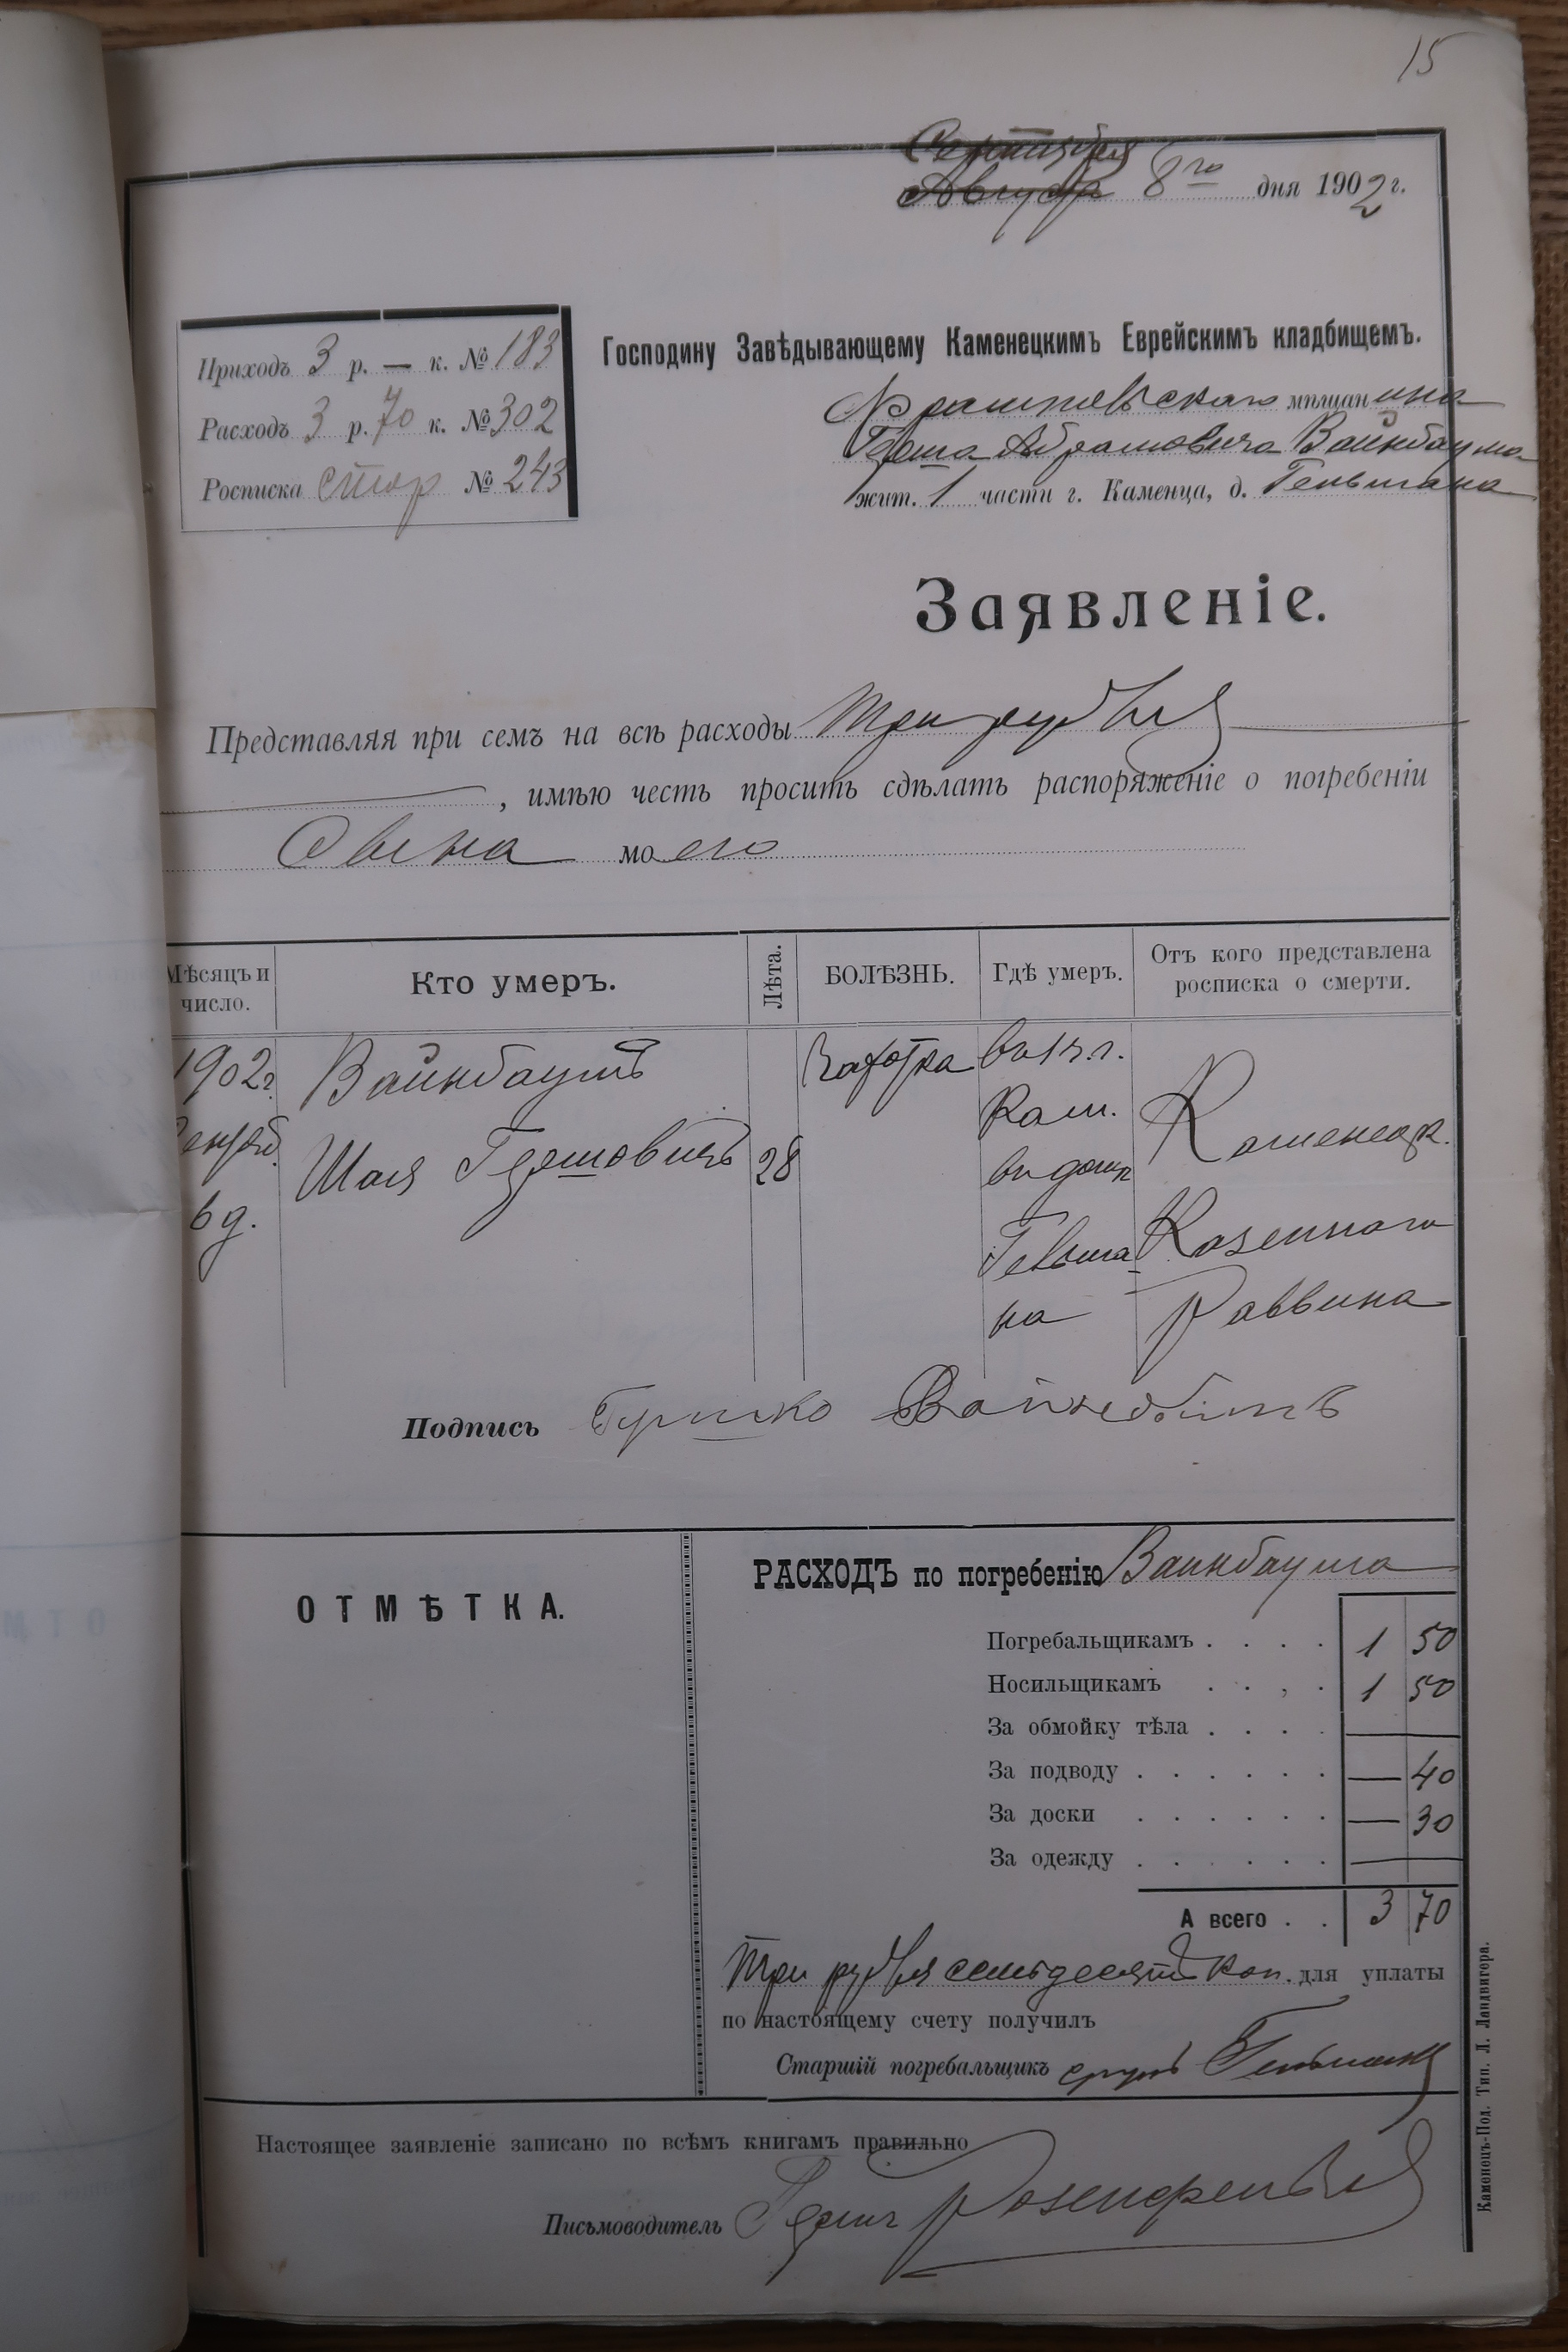 15
Сентября
Августа 8го дня 1902 г.
Приходъ 3 р. — к. № 183
Расходъ 3 р. 70 к. № 302
Росписка стор № 243
Господину Завѣдывающему Каменецкимъ Еврейскимъ кладбищемъ.
мѣщанина
Герша Абрамовича Вайнбаума
жит. 1 части г. Каменца, д. Гельмана
Заявленіе.
Представляя при семъ на всѣ расходы три рубля
, имѣю честь просить сдѣлать распоряженіе о погребеніи
Сына моего
Мѣсяцъ и число.
Кто умеръ.
Лѣта.
БОЛѢЗНЬ.
Гдѣ умеръ.
Отъ кого представлена росписка о смерти.
1902г.
6 д.
Вайнбаумъ
Шая Гершовичъ
28
Чахотка
во 1 ч. г.
Кам.
въ домѣ
Гельма-
на
Каменецк.
Казеннаго
Раввина
Подпись
РАСХОДЪ по погребенію Вайнбаума
ОТМѢТКА.
Погребальщикамъ . . . . 1 50
Носильщикамъ . . , . 1 50
За обмойку тѣла . . . . —
За подводу . . . . . . — 40
За доски . . . . . . — 30
За одежду . . . . . . —
А всего . . 3 70
Три рубля семьдесятъ коп. для уплаты
по настоящему счету получилъ
Старшій погребальщикъ
Настоящее заявленіе записано по всѣмъ книгамъ правильно
Письмоводитель Герш Розенфельд
Каменецъ-Под. Тип. Л. Ландвигера.